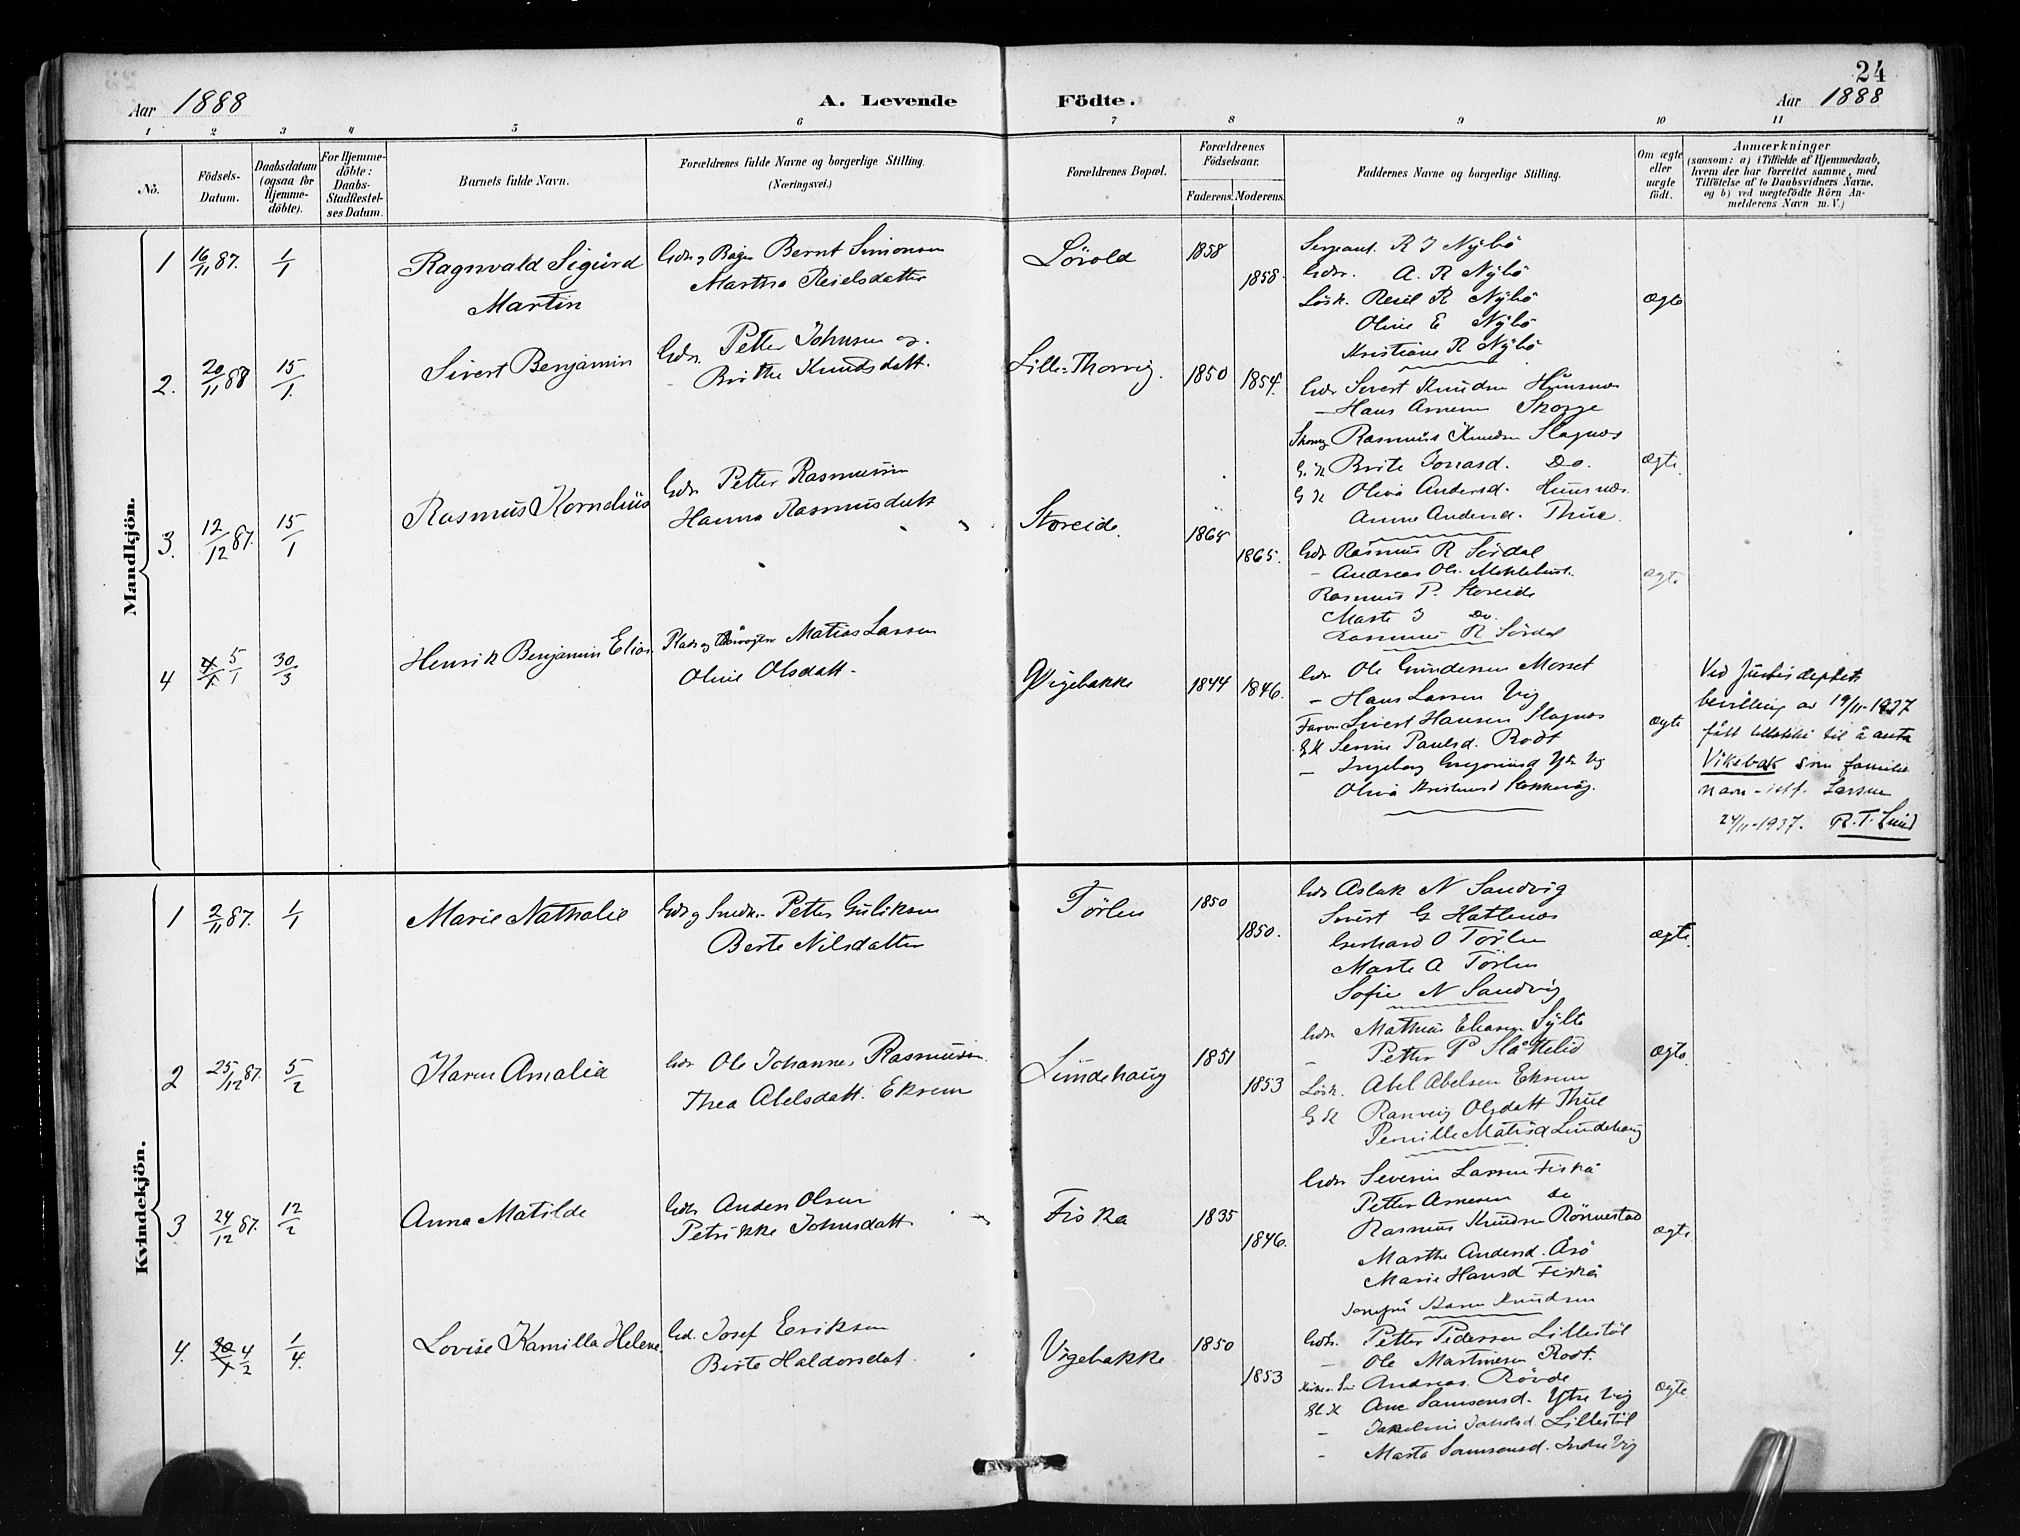 24
Aar 1888
A. Levende Födte.
Aar 1888
1 2 3 4 5 6 7 8 9 10 11
No.
Födsels-Datum.
Daabsdatum (ogsaa for Hjemme-döbte).
For Hjemme-döbte: Daabs-Stadfæstel-ses Datum.
Barnets fulde Navn.
Forældrenes fulde Navne og borgerlige Stilling.
(Næringsvei.)
Forældrenes Bopæl.
Forældrenes Födselsaar.
Faderens. Moderens.
Faddernes Navne og borgerlige Stilling.
Om ægte eller uægte födt.
Anmærkninger
(saasom: a) i Tilfælde af Hjemmedaab,
hvem der har forrettet samme, med
Tilföielse af to Daabsvidners Navne,
og b) ved uægtefödte Börn An-
melderens Navn m. V.)
Mandkjön.
1 16/11 87. 1/1
Ragnvald Sigurd
Martin
Bernt Simonsen
Martha Reielsdatter
Lövold
1858
1858.
Sergeant. R J Nybö
Gdr. A. R Nybö
Løsk. Reiel R Nybö
Oline E Nybö
Kristiane R Nybö
Ægte
2. 20/11 88 15/1.
Sivert Benjamin
Gdr. Petter Johnsen og.
Brithe Knudsdatt.
Lille-Thorvig.
1850 1854.
Gdr Sivert Knudsen
— Hans Arnesen Skogge
Rasmus Knudsen Slagnæs
G. K Brite Jonasd. Do.
G K Oliva Andersd. Hunsnæs.
Anne Andersd. Thue.
Ægte.
3. 12/12 87. 15/1
Rasmus Kornelius
Gdr Petter Rasmussen
Hanna Rasmusdatt
Storeide.
1865.
Gdr Rasmus R Sördal
- Andreas Ols. Meklebust.
Rasmus P. Storeide
Marte J Do.
Rasmus R Sördal
ægte
4 5/1 30/3
Henrik Benjamin Elias
Matias Larsen
Oline Olsdatt.
Vigebakke
1844 1846.
Gdr Ole Gundersen Morset
- Hans Larsen Vig
Sivert Hansen Slagnæs
GK Serine Paulsd. Rodt
- Ingeborg Gregoriusd Ytre Vig
Oliva Kristensd
ægte
Ved Justisdeptets
bevilling av 19/11-1937
fått tillatelse til å anta
Vikebak som familie
navn - istf. Larsen
24/11-1937. R. T. Lund
Kvindekjön.
1 2/11 87. 1/1
Marie Nathalie
Gdr og Smed. Petter Guliksen
Berte Nilsdatter
Törlen
1850
1850.
Gdr Aslak N Sandvig
Sivert G Hatlenæs
Gerhard O Törlen
Marte A Törlen
Sofie N Sandvig
ægte.
2 25/12 87. 5/2
Karen Amalia
Gdr Ole Johannes Rasmussen
Thea Abelsdatt. Ekrem
Lundehaug
1851
1853
Gdr Mathias Eliasen Sylte
- Petter P Slåttelid
Løsk. Abel Abelsen Ekrem
G K Ranveig Olsdatt Thue
Pernille Matisd Lundehaug
Ægte.
3 24/12 87. 12/2
Anna Matilde
Gdr Anders Olsen
Petrikke Johnsdatt
Fiska
1835
1846.
Gdr Severin Larsen Fiskå
Petter Arnesen do
Rasmus Knudsen Rönnestad
Marthe Andersd. Årö
Marie Hansd Fiskå
Karen Knudsen
Ægte.
4. 4/2 1/4.
Lovise Kamilla Helene.
Gd. Josef Eriksen
Berte Haldorsdat.
Vigebakke
1850
1853
Gdr. Petter Pedersen Lillestöl
- Ole Martinesen Rodt.
Andreas Rövde
Ane Samsonsd. Ytre Vig
- Jakobine Jakobsd. Lillestöl
- Marta Samsonsd. Indre Vig
Ægte.